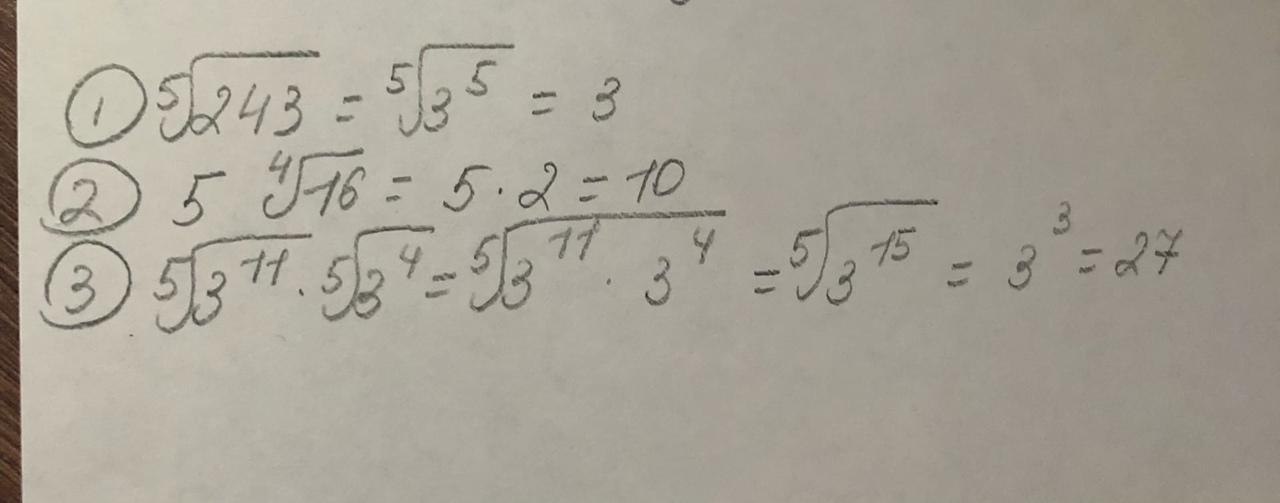 ① ⁵√243 = ⁵√3⁵ = 3
② 5 ⁴√16 = 5 · 2 = 10
③ ⁵√3¹¹ · ⁵√3⁴ = ⁵√(3¹¹ · 3⁴) = ⁵√3¹⁵ = 3³ = 27